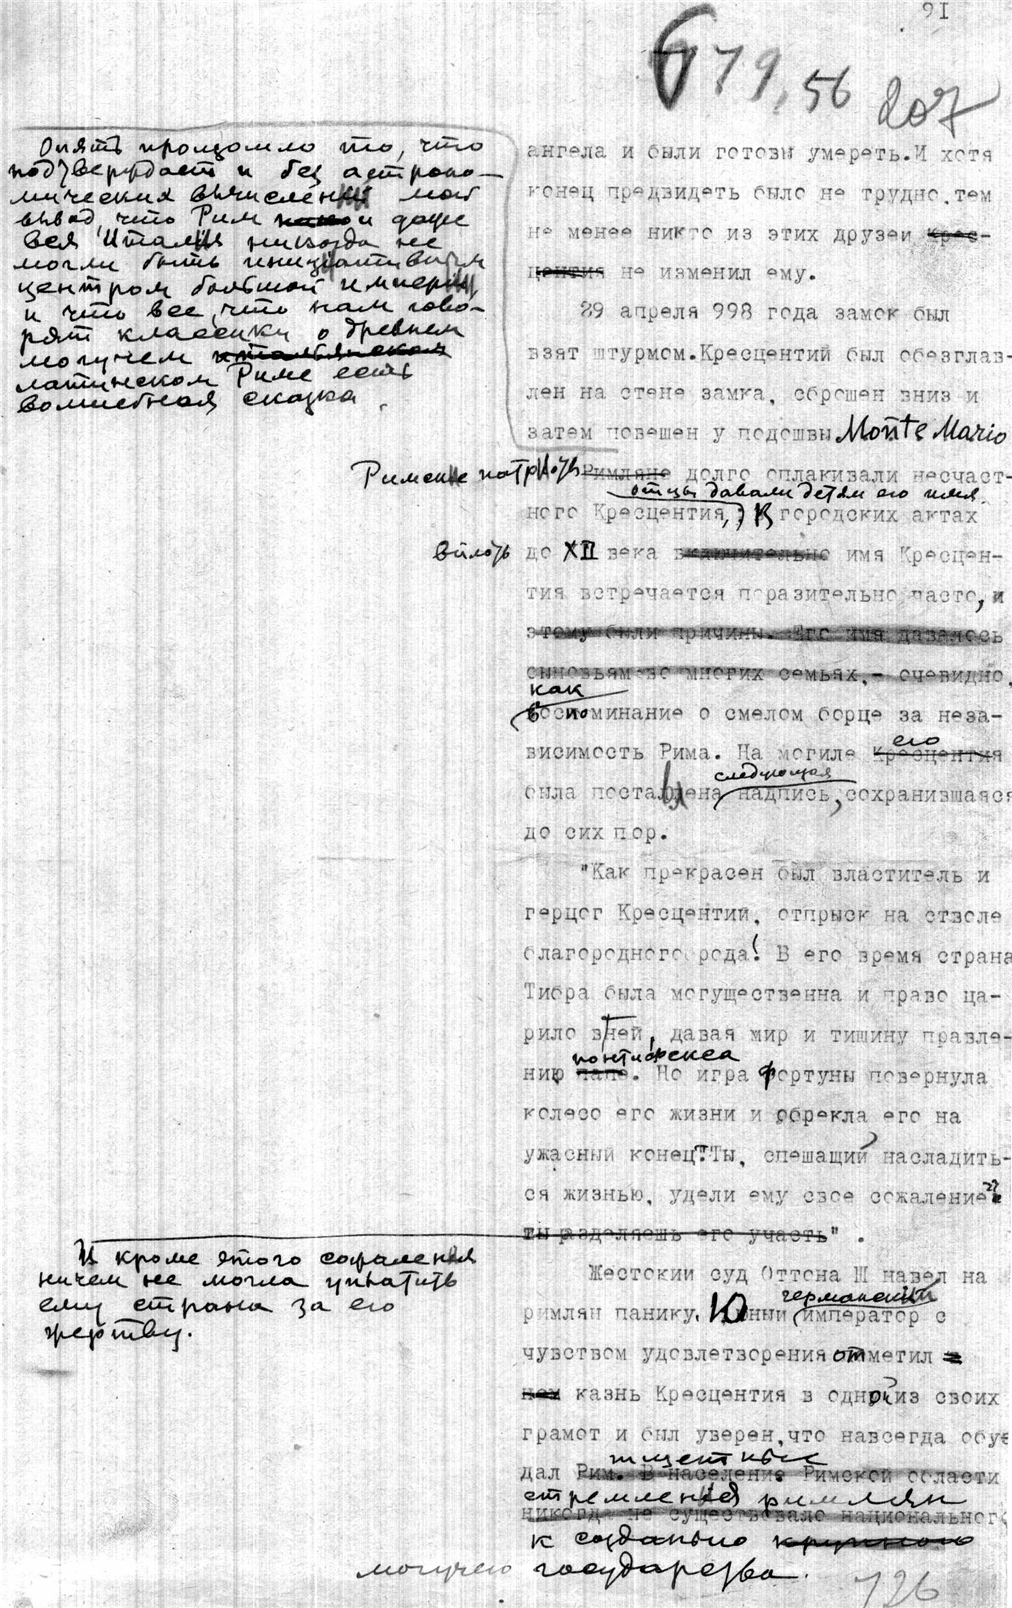 91
679, 56 207
Опять произошло то, что
подтверждает и без астроно-
мических вычислений мой
вывод, что Рим и даже
вся Италия никогда не
могли быть инициативным
центром большой империи,
и что все, что нам гово-
рят классики о древнем
могучем итальянском
латинском Риме есть
волшебная сказка.
ангела и были готовы умереть. И хотя
конец предвидеть было не трудно, тем
не менее никто из этих друзей Крес-
центия не изменил ему.
29 апреля 998 года замок был
взят штурмом. Кресцентий был обезглав-
лен на стене замка, сброшен вниз и
затем повешен у подошвы Monte Mario
Римские патриоты Римляне долго оплакивали несчаст-
отцы давали детям его имя
ного Кресцентия, В городских актах
вплоть до XII века включительно имя Кресцен-
тия встречается поразительно часто, и
этому были причины. Его имя давалось
сыновьям во многих семьях,- очевидно,
как
воспоминание о смелом борце за неза-
висимость Рима. На могиле Кресцентия
его
следующая
была поставлена надпись, сохранившаяся
до сих пор.
"Как прекрасен был властитель и
герцог Кресцентий, отпрыск на стволе
благородного рода! В его время страна
Тибра была могущественна и право ца-
рило в ней, давая мир и тишину правле-
понтифекса
нию папе. Но игра фортуны повернула
колесо его жизни и обрекла его на
ужасный конец. Ты, спешащий насладить-
ся жизнью, удели ему свое сожаление
ты разделяешь его участь".
И кроме этого сожаления
ничем не могла уплатить
ему страна за его
жертву.
Жестокий суд Оттона III навел на
германский
римлян панику. Юный император с
чувством удовлетворения отметил
нем казнь Кресцентия в одной из своих
грамот и был уверен, что навсегда обуз
тщетные
дал Рим. В населении Римской области
стремления римлян
никогда не существовало национального
к созданию крупного
могучего государства.
726